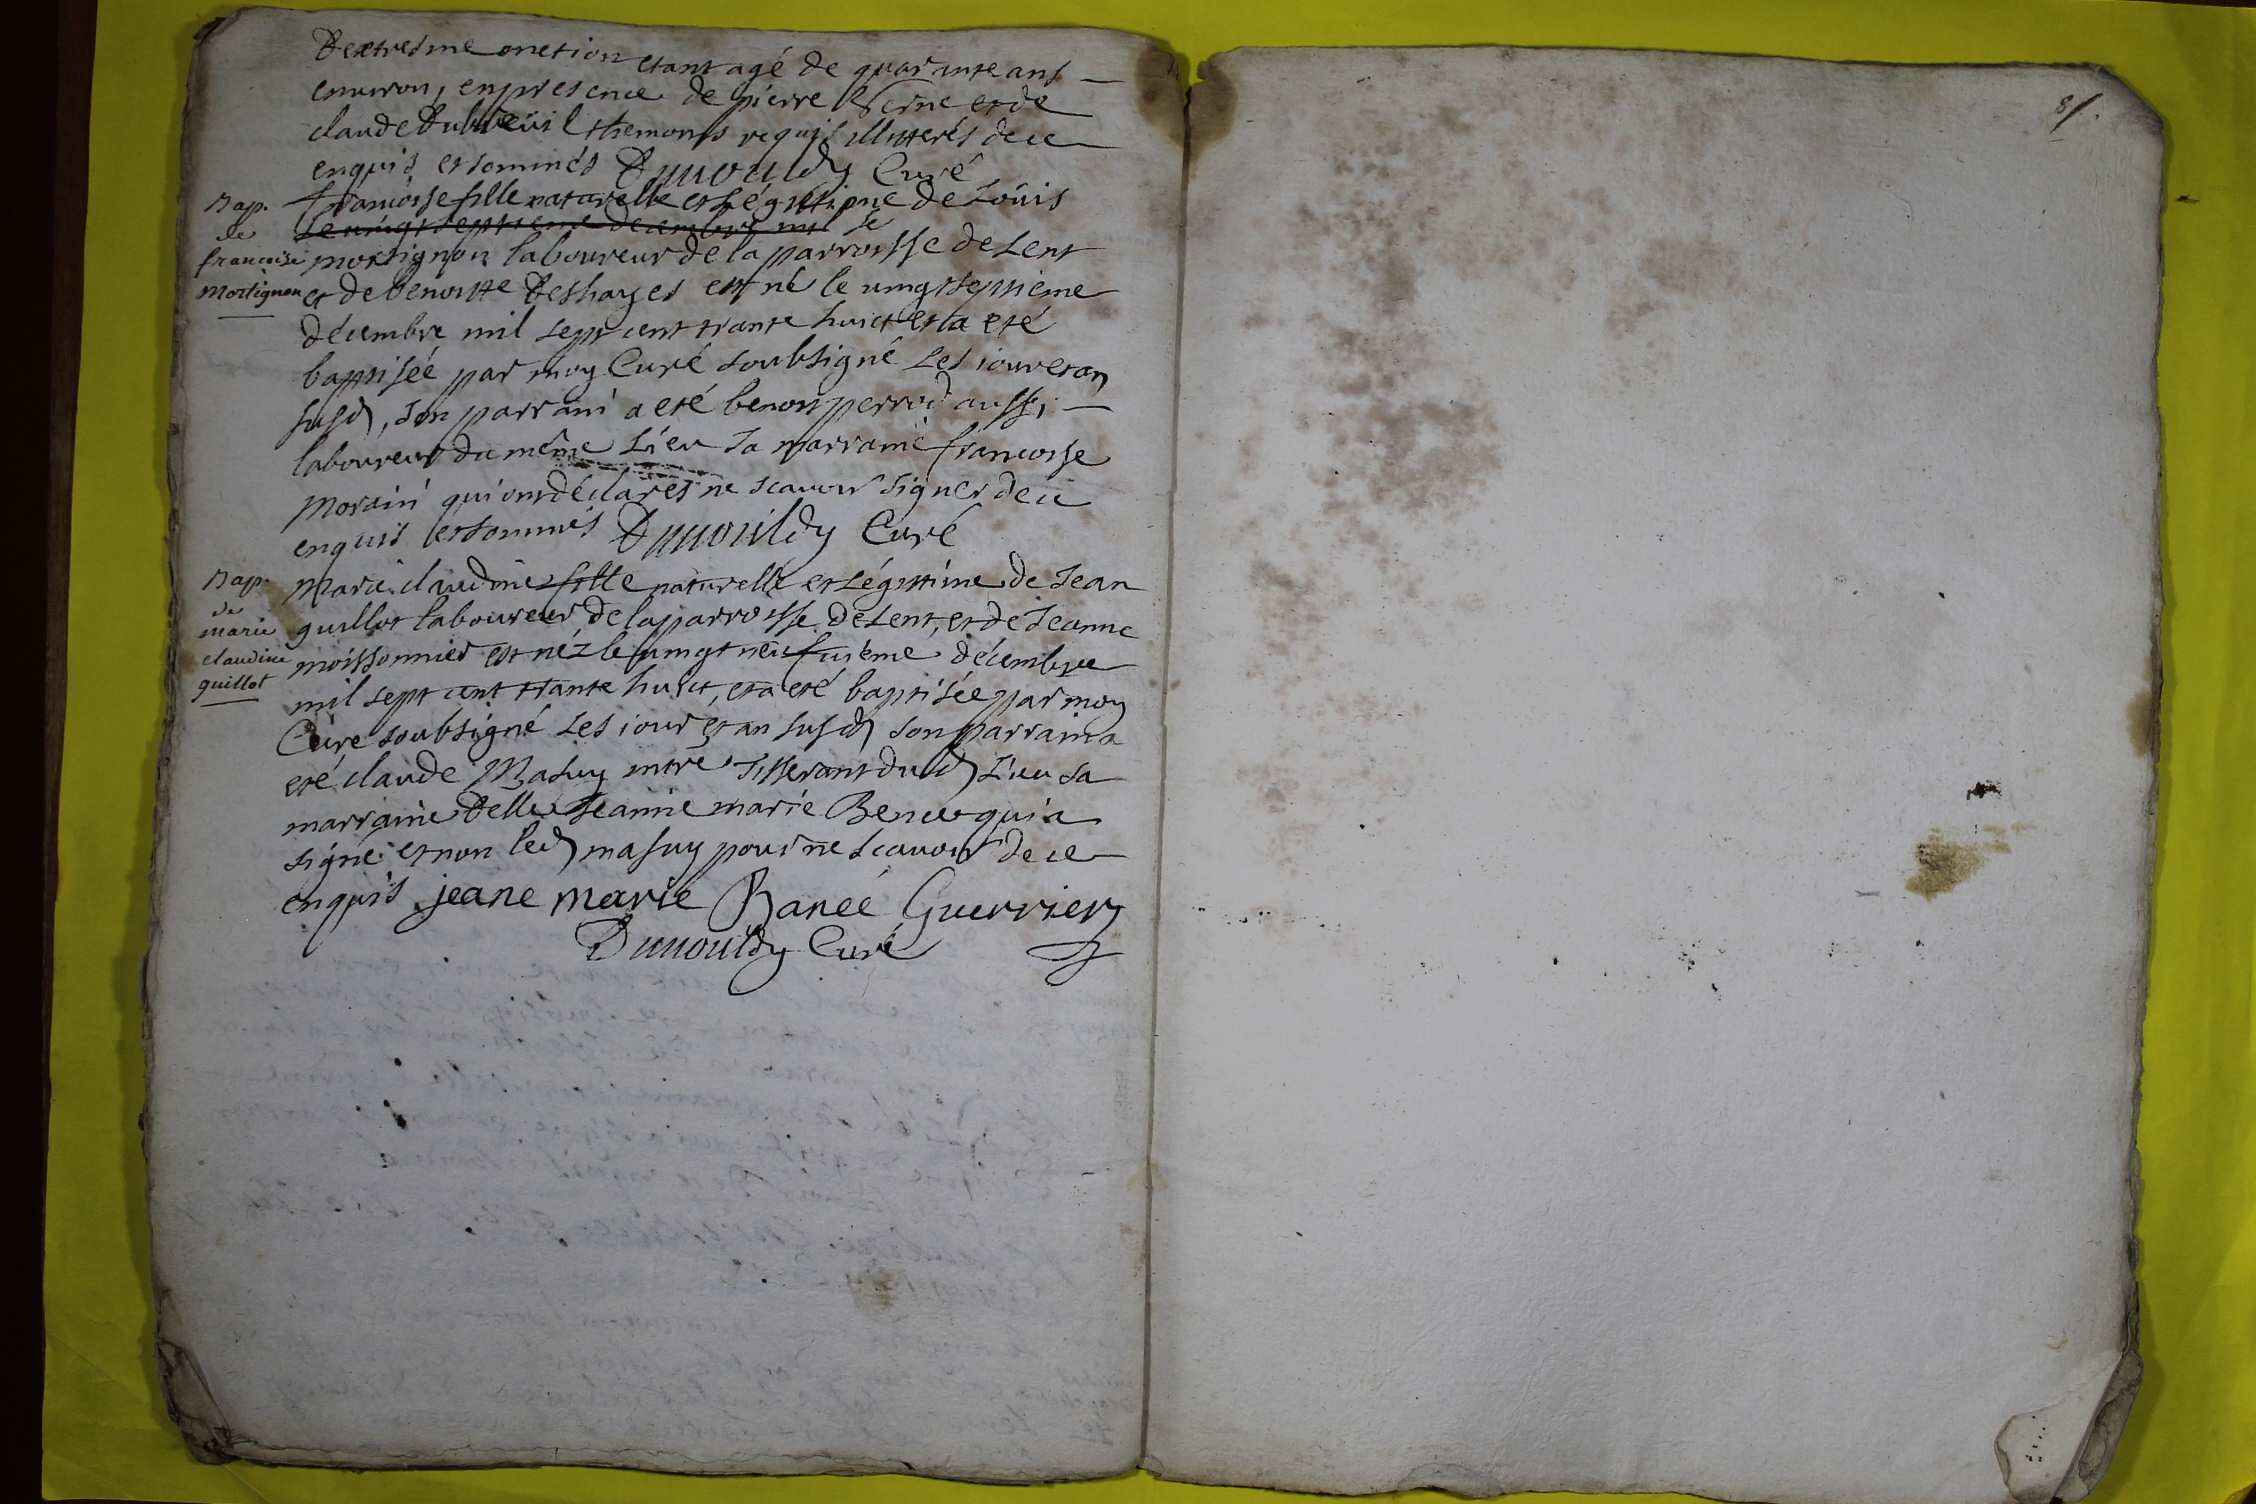 D'extresme onction etant agé de quarante ans
environ, en presence de pierre Verne et de
claude Dubreüil themoins requis illiterés de ce
enquis et sommés Dunouldy Curé
Bap.
de
francoise
Mortignon
francoise fille naturelle et Légitime de Loüis
Le vingt septieme decembre mil se
mortignon laboureur de la parroisse de Lent
et de benoitte Deshayes est né le vingt septieme
décembre mil sept cent trante huict et a eté
baptisée par moy Curé soubsigné Les jour et an
susd, son parrain a eté benoit perrod aussi
laboureur du même Lieu sa marraine francoise
Morain qui ont déclarés ne scavoir signer de ce
enquis et sommés Dunouldy Curé
Bap.
de
marie
claudine
guillot
Marie claudine fille naturelle et Légitime de Jean
guillot laboureur de la parroisse de Lent, et de Jeanne
moissonnier est néz le vingt neufvième décembre
mil sept cent trante huict, et a eté baptisée par moy
Cure soubsigné Les jour et an susd son parrain a
eté claude Masuy mtre tisserant dud Lieu sa
marraine Delle Jeanne marie qui a
signé et non led masuy pour ne scavoir de ce
enquis jeane marie Banée Guerrier
Dunouldy Curé
81.